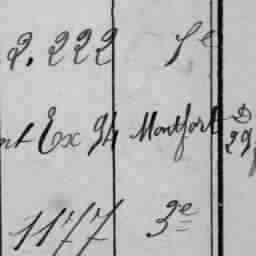 2.222 1e
nt Ex 94 Montfort D
29
1177 3e